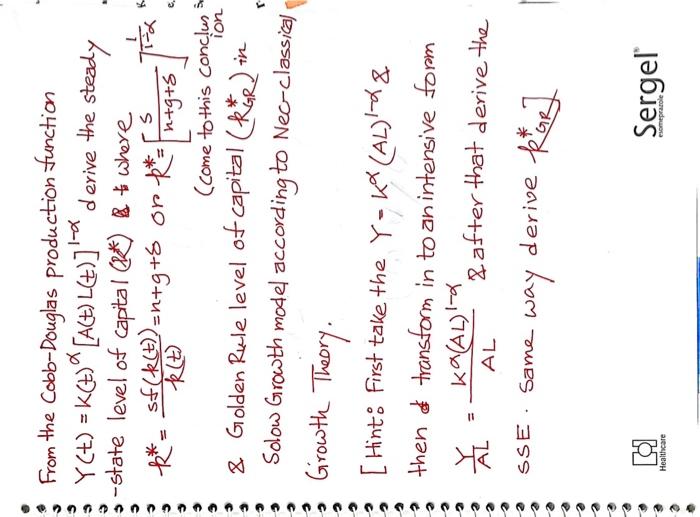 From the Cobb-Douglas production function
Y(t) = K(t)^α [A(t)L(t)]^1-α derive the steady
-state level of capital (k*) & where
k* = sf(k(t))/k(t) = n+g+δ or k* = [s/n+g+δ]^1/1-α
(come to this conclusion
& Golden Rule level of capital (k*GR) in
Solow Growth model according to Neo-classical
Growth Theory.
[Hint: First take the Y = K^α (AL)^1-α &
then transform in to an intensive form
Y/AL = K^α(AL)^1-α/AL & after that derive the
SSE. Same way derive k*GR]
Healthcare
Sergel
esomeprazole